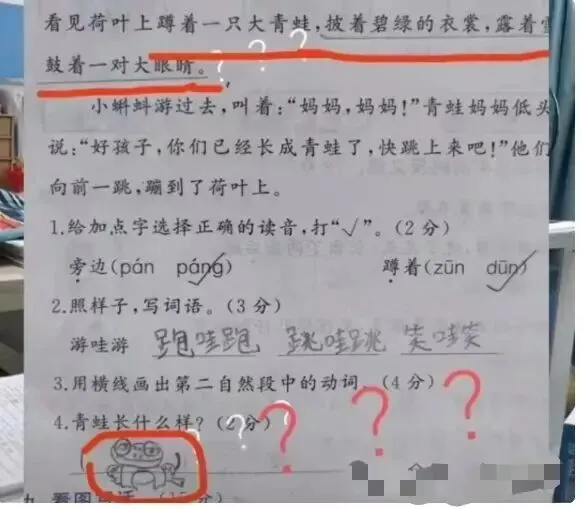 看见荷叶上蹲着一只大青蛙，披着碧绿的衣裳，露着
鼓着一对大眼睛。
小蝌蚪游过去，叫着：“妈妈，妈妈！”青蛙妈妈低头
说：“好孩子，你们已经长成青蛙了，快跳上来吧！”他们
向前一跳，蹦到了荷叶上。
1.给加点字选择正确的读音，打“√”。(2分)
旁边(pán páng) 蹲着(zūn dūn)
2.照样子，写词语。(3分)
游哇游 跑哇跑 跳哇跳 笑哇笑
3.用横线画出第二自然段中的动词。(4分)
4.青蛙长什么样？(2分)
? ? ? ? ? ? ? ?